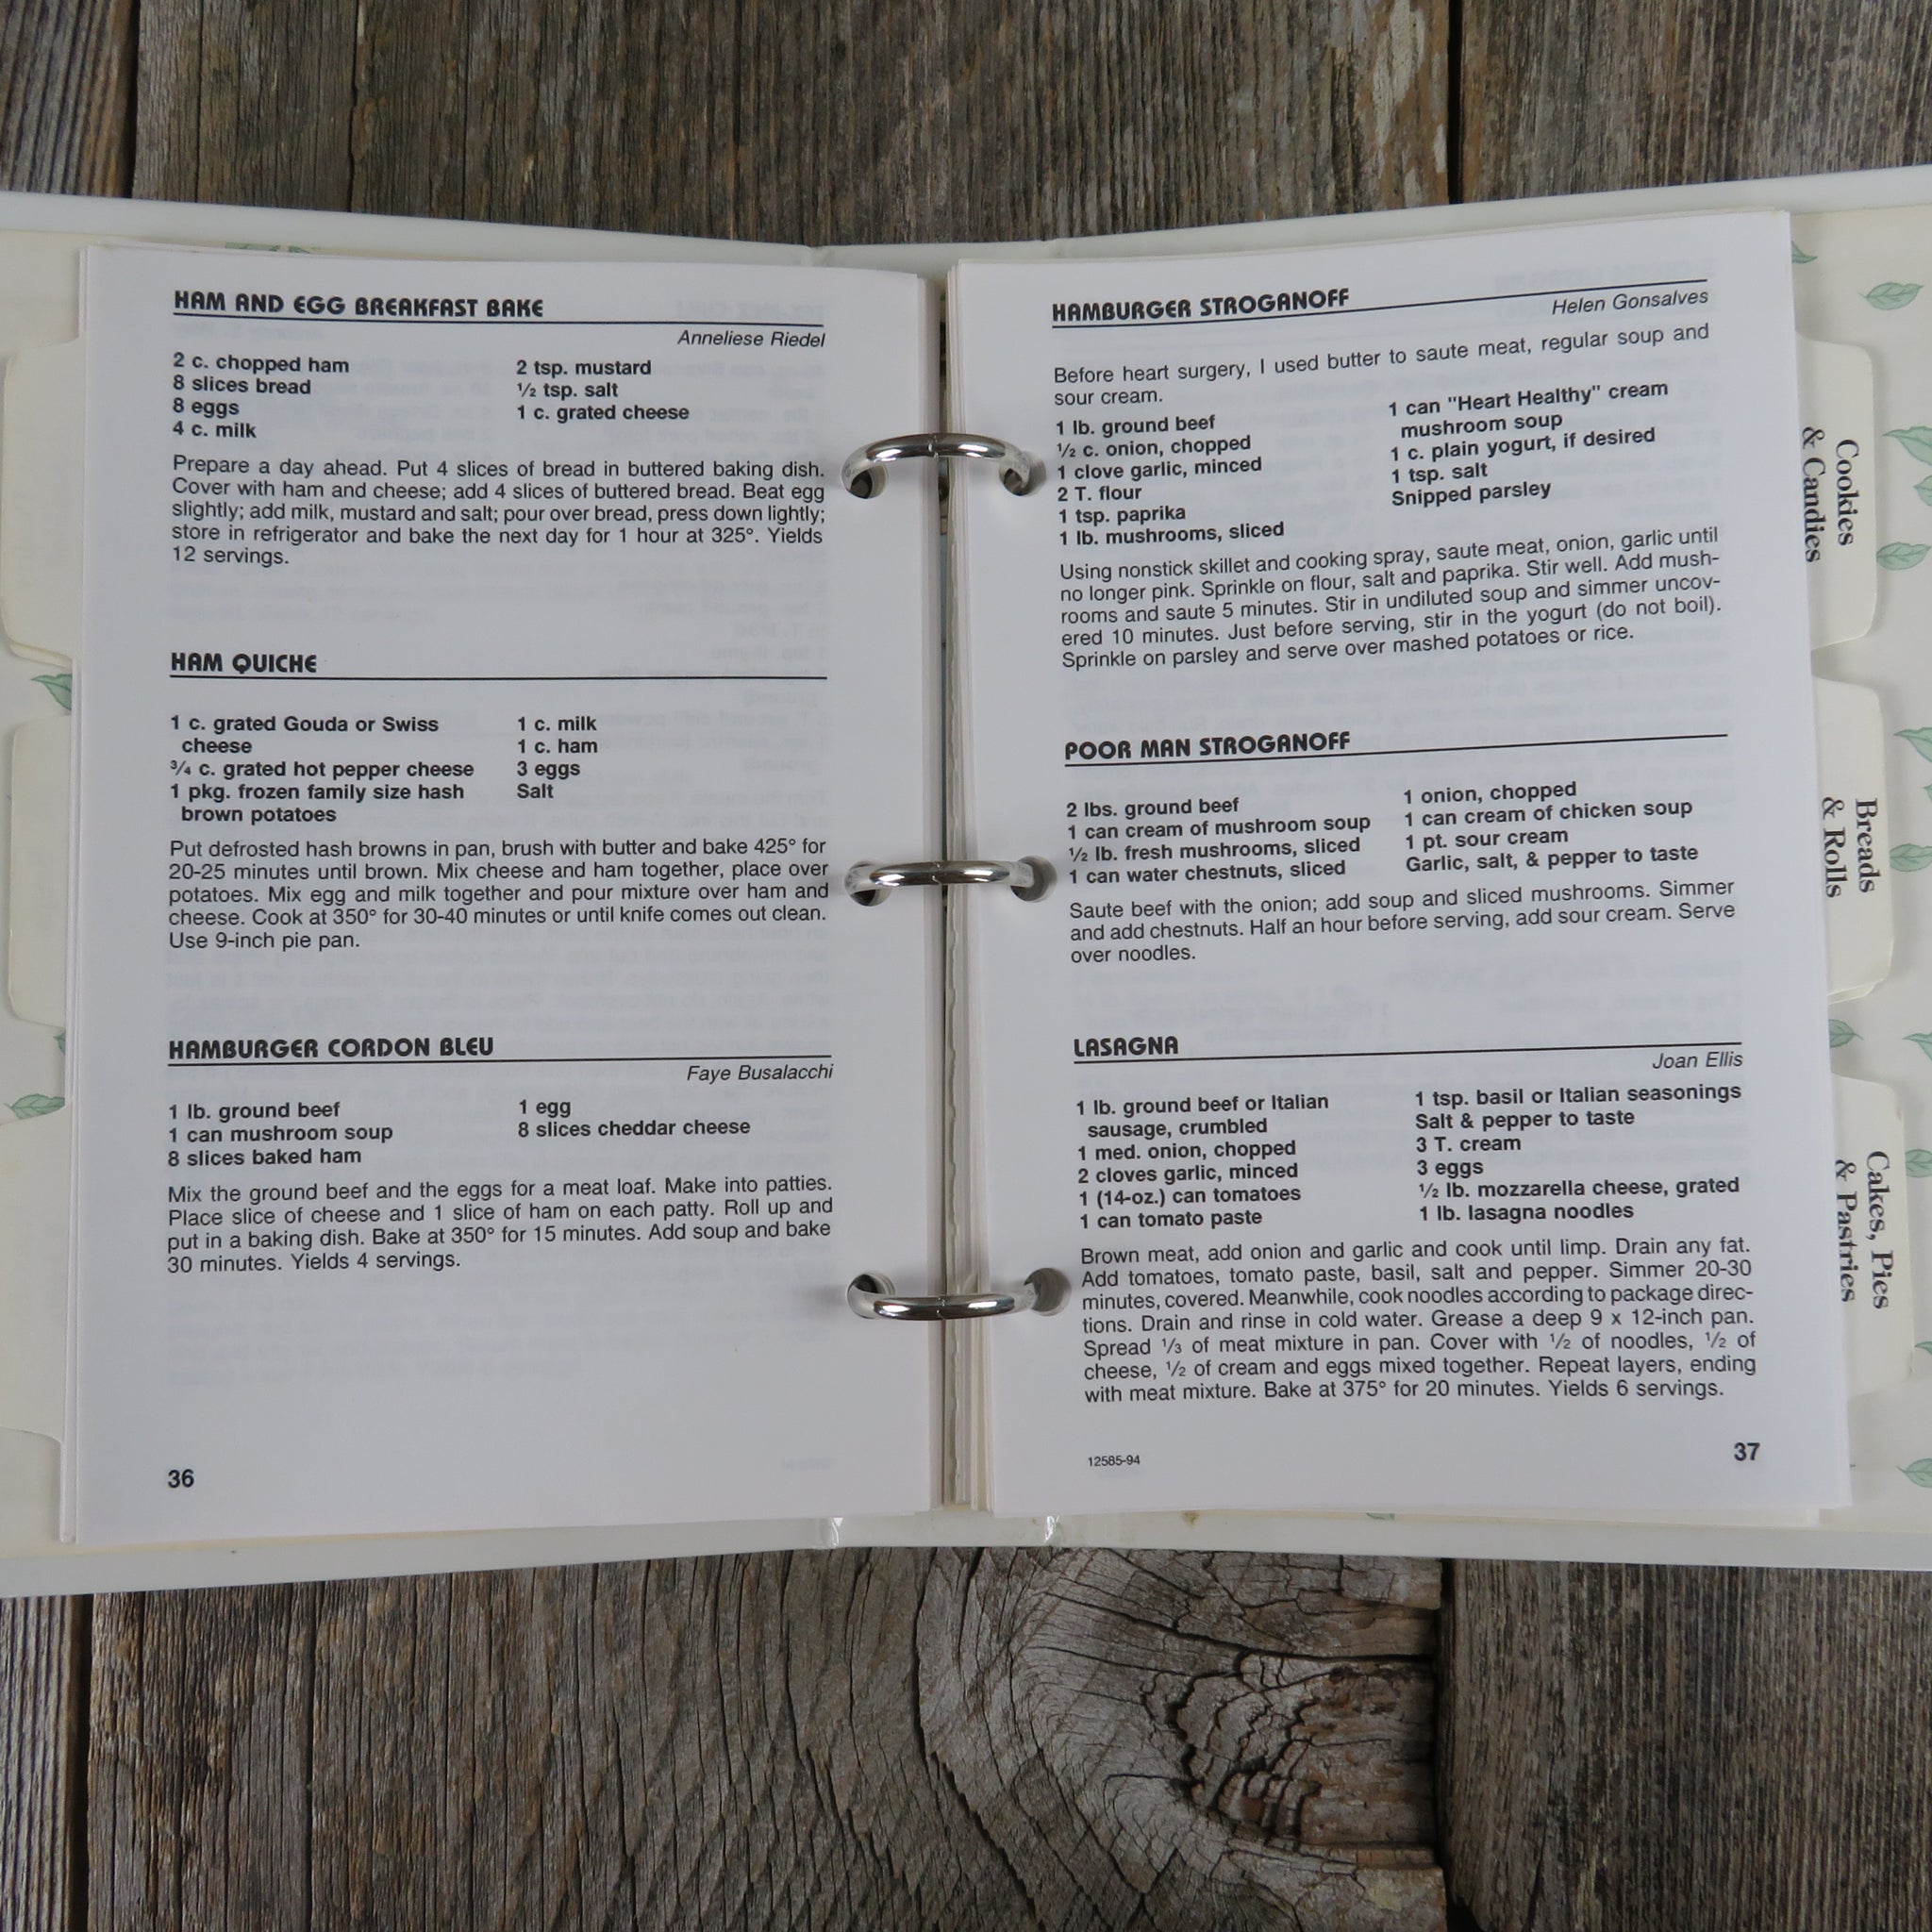 HAM AND EGG BREAKFAST BAKE
Anneliese Riedel
2 c. chopped ham
8 slices bread
8 eggs
4 c. milk
2 tsp. mustard
½ tsp. salt
1 c. grated cheese
Prepare a day ahead. Put 4 slices of bread in buttered baking dish.
Cover with ham and cheese; add 4 slices of buttered bread. Beat egg
slightly; add milk, mustard and salt; pour over bread, press down lightly;
store in refrigerator and bake the next day for 1 hour at 325°. Yields
12 servings.
HAM QUICHE
1 c. grated Gouda or Swiss
cheese
¾ c. grated hot pepper cheese
1 pkg. frozen family size hash
brown potatoes
1 c. milk
1 c. ham
3 eggs
Salt
Put defrosted hash browns in pan, brush with butter and bake 425° for
20-25 minutes until brown. Mix cheese and ham together, place over
potatoes. Mix egg and milk together and pour mixture over ham and
cheese. Cook at 350° for 30-40 minutes or until knife comes out clean.
Use 9-inch pie pan.
HAMBURGER CORDON BLEU
Faye Busalacchi
1 lb. ground beef
1 can mushroom soup
8 slices baked ham
1 egg
8 slices cheddar cheese
Mix the ground beef and the eggs for a meat loaf. Make into patties.
Place slice of cheese and 1 slice of ham on each patty. Roll up and
put in a baking dish. Bake at 350° for 15 minutes. Add soup and bake
30 minutes. Yields 4 servings.
36
HAMBURGER STROGANOFF
Helen Gonsalves
Before heart surgery, I used butter to saute meat, regular soup and
sour cream.
1 lb. ground beef
½ c. onion, chopped
1 clove garlic, minced
2 T. flour
1 tsp. paprika
1 lb. mushrooms, sliced
1 can "Heart Healthy" cream
mushroom soup
1 c. plain yogurt, if desired
1 tsp. salt
Snipped parsley
Using nonstick skillet and cooking spray, saute meat, onion, garlic until
no longer pink. Sprinkle on flour, salt and paprika. Stir well. Add mush-
rooms and saute 5 minutes. Stir in undiluted soup and simmer uncov-
ered 10 minutes. Just before serving, stir in the yogurt (do not boil).
Sprinkle on parsley and serve over mashed potatoes or rice.
POOR MAN STROGANOFF
2 lbs. ground beef
1 can cream of mushroom soup
½ lb. fresh mushrooms, sliced
1 can water chestnuts, sliced
1 onion, chopped
1 can cream of chicken soup
1 pt. sour cream
Garlic, salt, & pepper to taste
Saute beef with the onion; add soup and sliced mushrooms. Simmer
and add chestnuts. Half an hour before serving, add sour cream. Serve
over noodles.
LASAGNA
Joan Ellis
1 lb. ground beef or Italian
sausage, crumbled
1 med. onion, chopped
2 cloves garlic, minced
1 (14-oz.) can tomatoes
1 can tomato paste
1 tsp. basil or Italian seasonings
Salt & pepper to taste
3 T. cream
3 eggs
½ lb. mozzarella cheese, grated
1 lb. lasagna noodles
Brown meat, add onion and garlic and cook until limp. Drain any fat.
Add tomatoes, tomato paste, basil, salt and pepper. Simmer 20-30
minutes, covered. Meanwhile, cook noodles according to package direc-
tions. Drain and rinse in cold water. Grease a deep 9 x 12-inch pan.
Spread ⅓ of meat mixture in pan. Cover with ½ of noodles, ½ of
cheese, ½ of cream and eggs mixed together. Repeat layers, ending
with meat mixture. Bake at 375° for 20 minutes. Yields 6 servings.
12585-94
37
Cookies
& Candies
Breads
& Rolls
Cakes, Pies
& Pastries